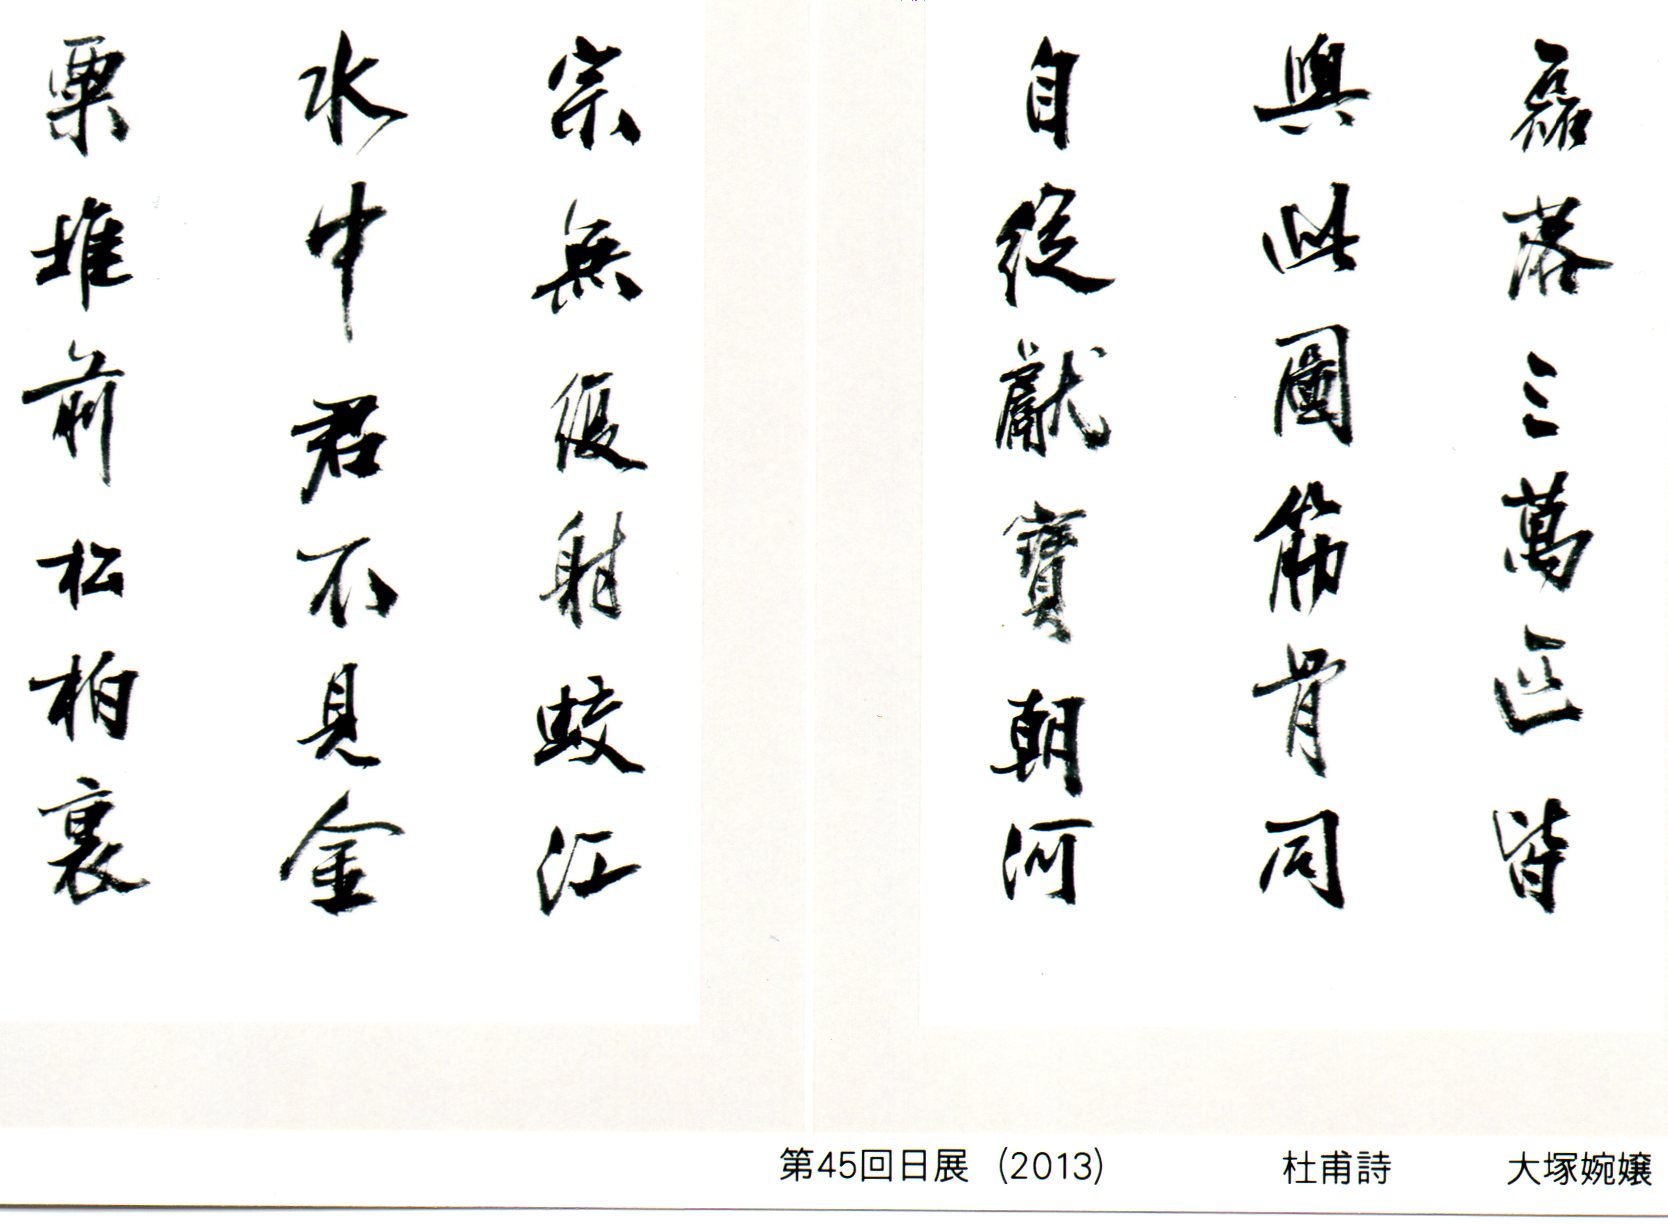 磊落三萬匹皆
與此圖筋骨同
自從獻寶朝河
宗無復射蛟江
水中君不見金
粟堆前松柏裏
第45回日展 (2013) 杜甫詩 大塚婉嬢